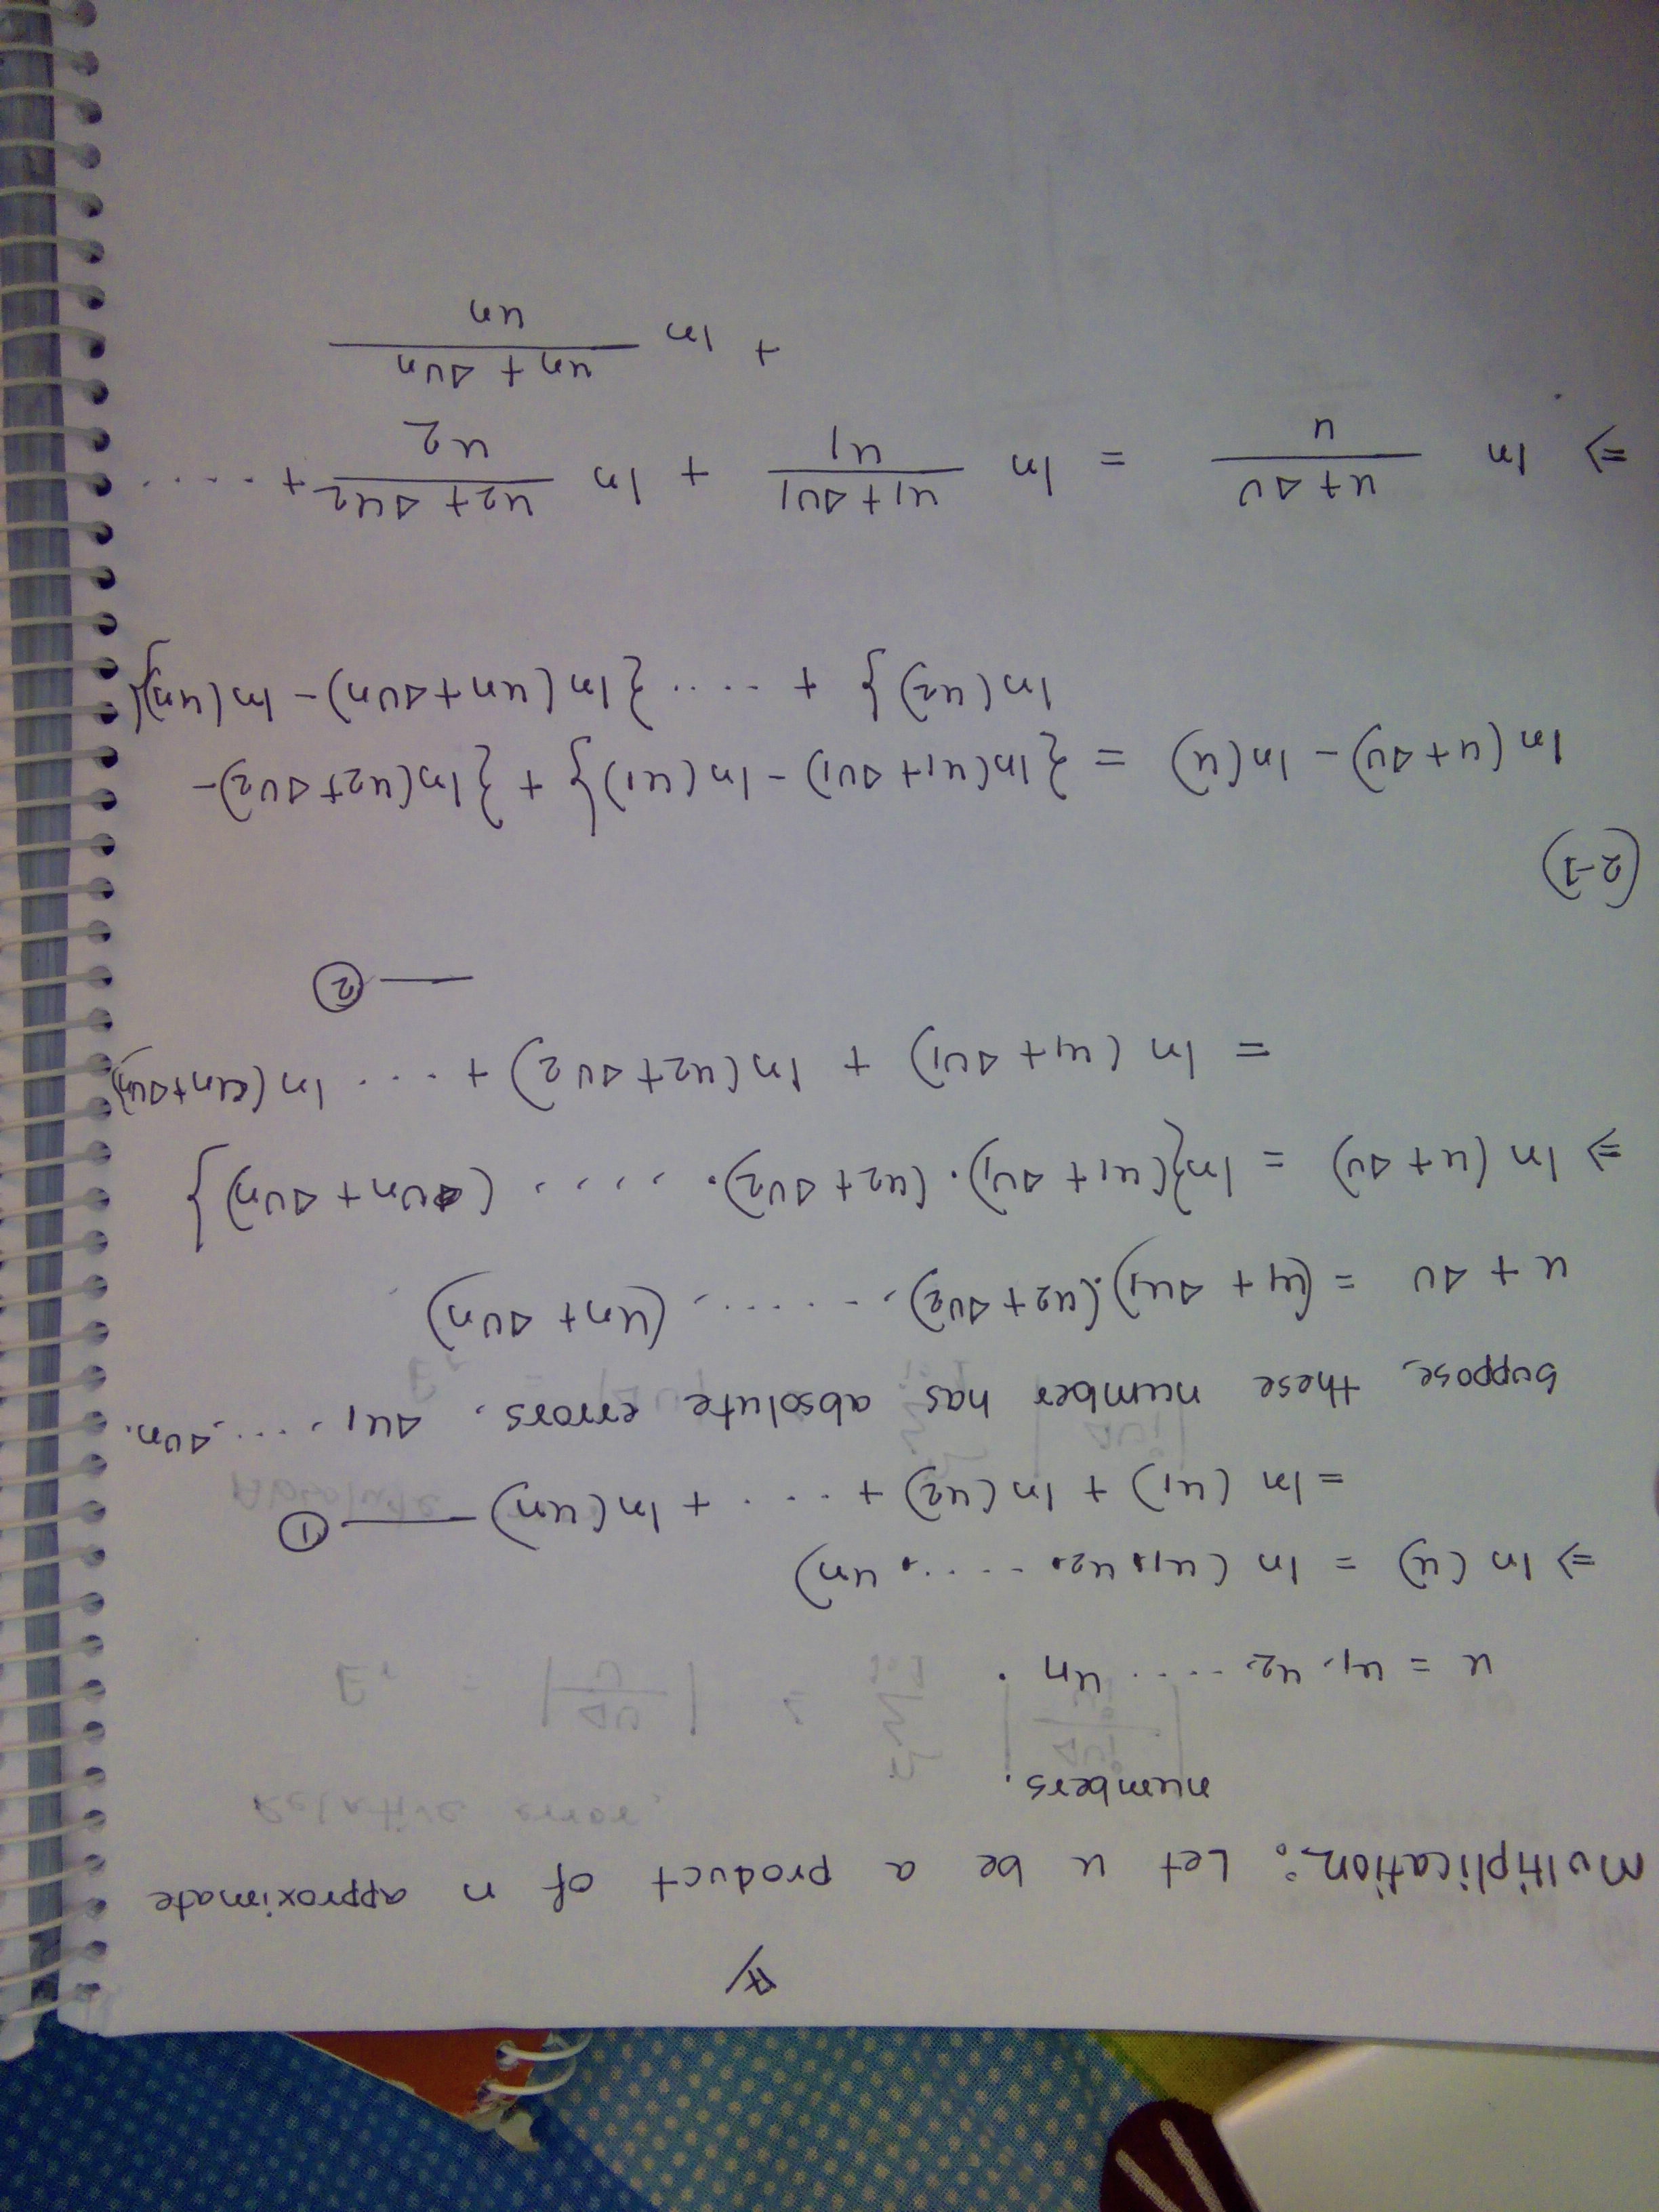 7/
Multiplication: Let u be a product of n approximate
numbers.
u = u1. u2. ..... un.
⇒ ln (u) = ln (u1. u2. ..... un)
= ln (u1) + ln (u2) + .... + ln (un) — ①
Suppose, these number has absolute errors. Δu1, ....., Δun.
u + Δu = (u1 + Δu1).(u2 + Δu2). ...... (un + Δun)
⇒ ln (u + Δu) = ln{(u1 + Δu1). (u2 + Δu2). .... (un + Δun)}
= ln (u1 + Δu1) + ln (u2 + Δu2) + .... ln (un + Δun)
— ②
(2-1)
ln (u + Δu) - ln (u) = {ln (u1 + Δu1) - ln (u1)} + {ln (u2 + Δu2) -
ln (u2)} + ..... {ln (un + Δun) - ln (un)}
⇒ ln (u + Δu)/u = ln (u1 + Δu1)/u1 + ln (u2 + Δu2)/u2 + .....
+ ln (un + Δun)/un